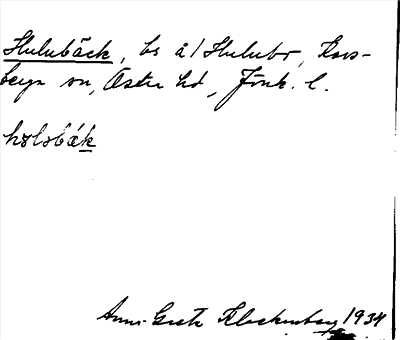 Hulubäck, bs å/Hulubo, Kors-
berga sn, Östra hd, Jönk. l.
hølobäk
Anna-Greta Klockenberg 1934